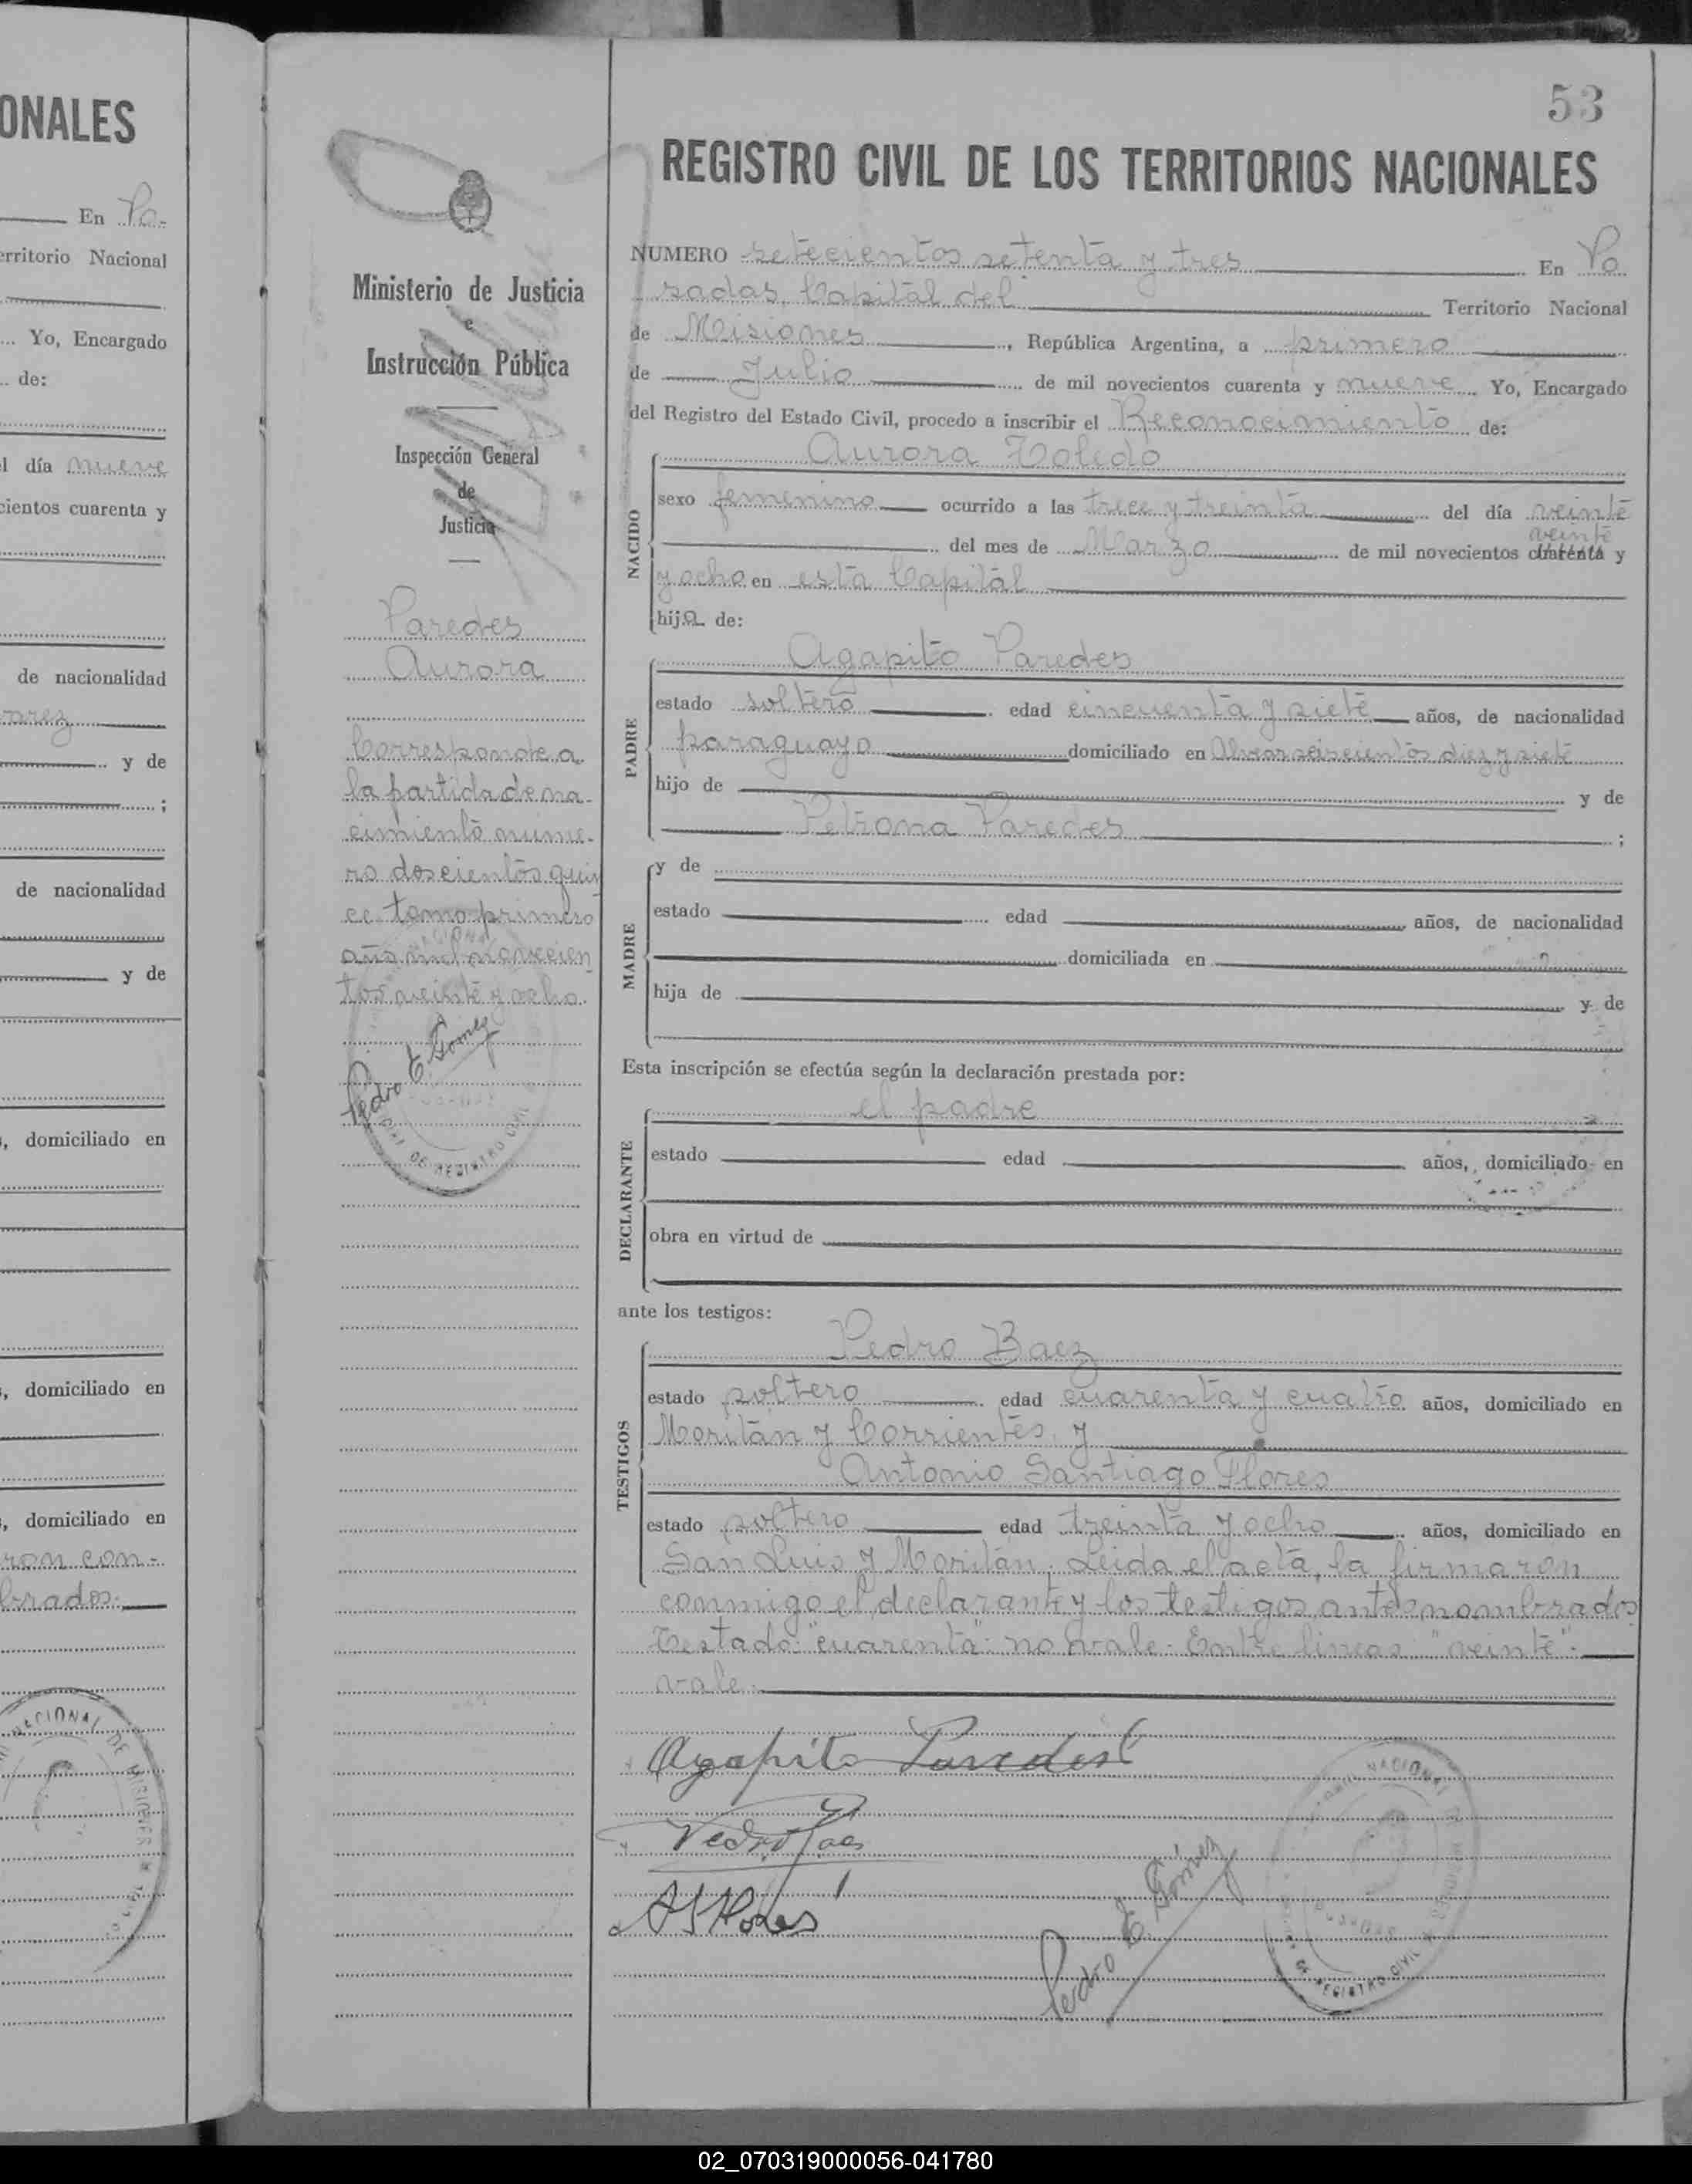 ONALES
En Po-
erritorio Nacional
Yo, Encargado
de:
l día nueve
cientos cuarenta y
de nacionalidad
arez
y de
;
de nacionalidad
y de
, domiciliado en
, domiciliado en
, domiciliado en
ron con-
brados.
NACIONAL DE MISIONES
53
Ministerio de Justicia
e
Instrucción Pública
Inspección General
de
Justicia
Paredes
Aurora
Corresponde a
la partida de na-
cimiento núme-
ro doscientos quin
ce tomo primero
año mil novecien
tos veinte y ocho.
Pedro E. Gomez
DE REGISTRO CIVIL
REGISTRO CIVIL DE LOS TERRITORIOS NACIONALES
NUMERO setecientos setenta y tres En Po
sadas, Capital del Territorio Nacional
de Misiones, República Argentina, a primero
de Julio de mil novecientos cuarenta y nueve Yo, Encargado
del Registro del Estado Civil, procedo a inscribir el Reconocimiento de:
NACIDO
Aurora Toledo
sexo femenino ocurrido a las trece y treinta del día veinte
veinte
del mes de Marzo de mil novecientos cuarenta y
y ocho en esta Capital
hija de:
PADRE
Agapito Paredes
estado soltero edad cincuenta y siete años, de nacionalidad
paraguayo domiciliado en Alvear seiscientos diez y siete
hijo de y de
Petrona Paredes ;
MADRE
y de
estado edad años, de nacionalidad
domiciliada en
hija de y de
Esta inscripción se efectúa según la declaración prestada por:
DECLARANTE
el padre
estado edad años, domiciliado en
obra en virtud de
ante los testigos:
TESTIGOS
Pedro Baez
estado soltero edad cuarenta y cuatro años, domiciliado en
Moritán y Corrientes y
Antonio Santiago Flores
estado soltero edad treinta y ocho años, domiciliado en
San Luis y Moritán. Leida el acta, la firmaron
conmigo el declarante y los testigos antes nombrados
Testado: "cuarenta": no vale. Entre lineas "veinte":
vale.
Agapito Paredes
Pedro Baez
A S Flores
Pedro E. Gómez
NACIONAL DE MISIONES
POSADAS
DE REGISTRO CIVIL
02_070319000056-041780